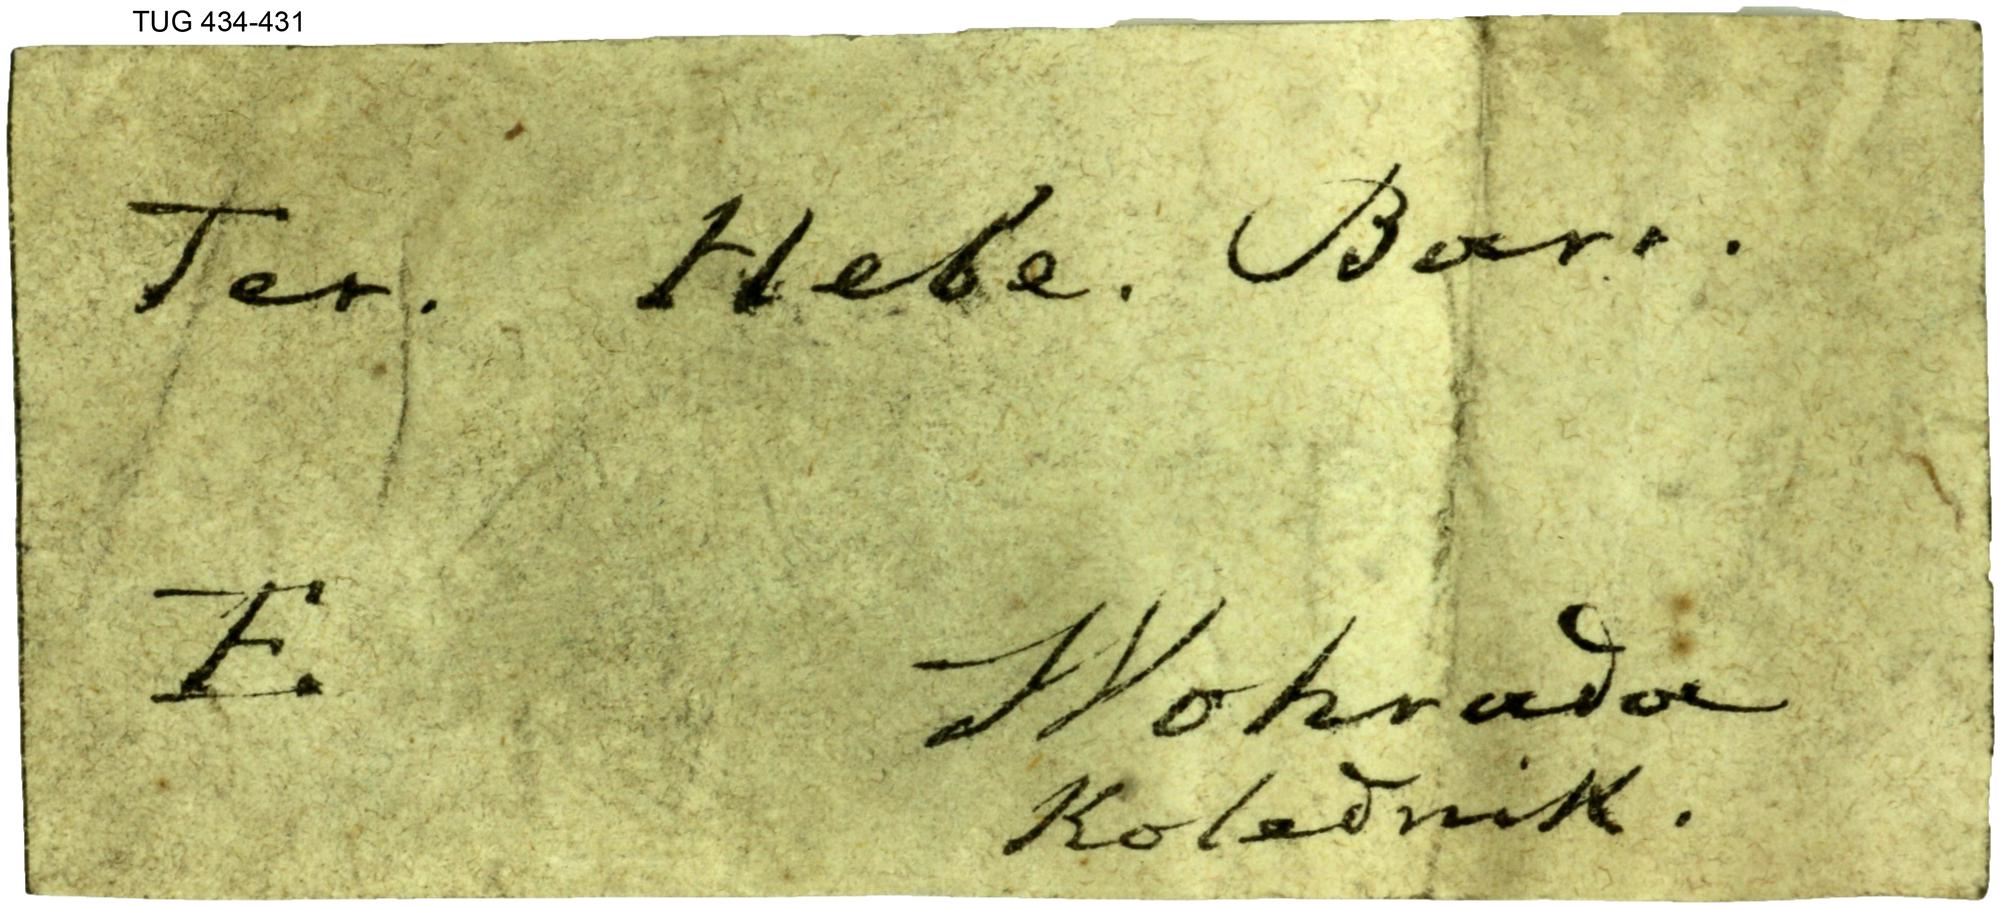 TUG 434-431
Ter. Hebe. Barr.
E
Wohrada
Kolednik.